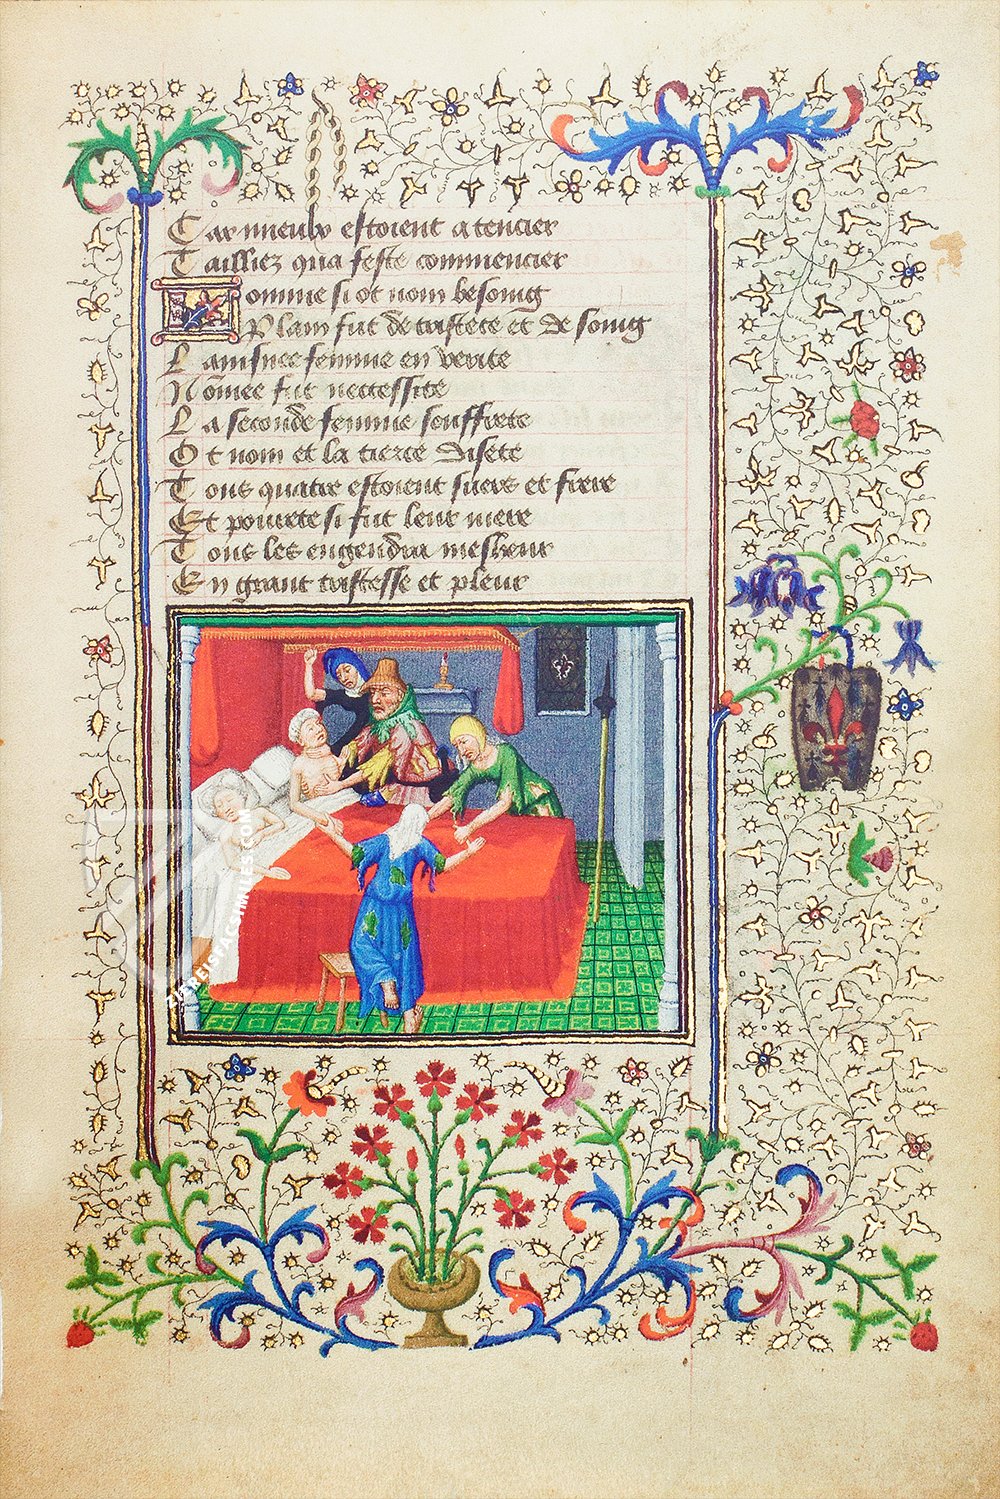 Car mieulx estoient a tencier
Tailliez qua feste commencier
Lomme si ot nom besoing
Plain fut de tristete et de soing
Lainsnee femme en verite
Nommee fut neccessite
La seconde femme souffrete
Ot nom et la tierce disete
Tous quatre estoient suers et frere
Et pourete si fut leur mere
Tous les engendra mesheur
En grant tristesse et pleur
ZIEREIS FACSIMILES.COM